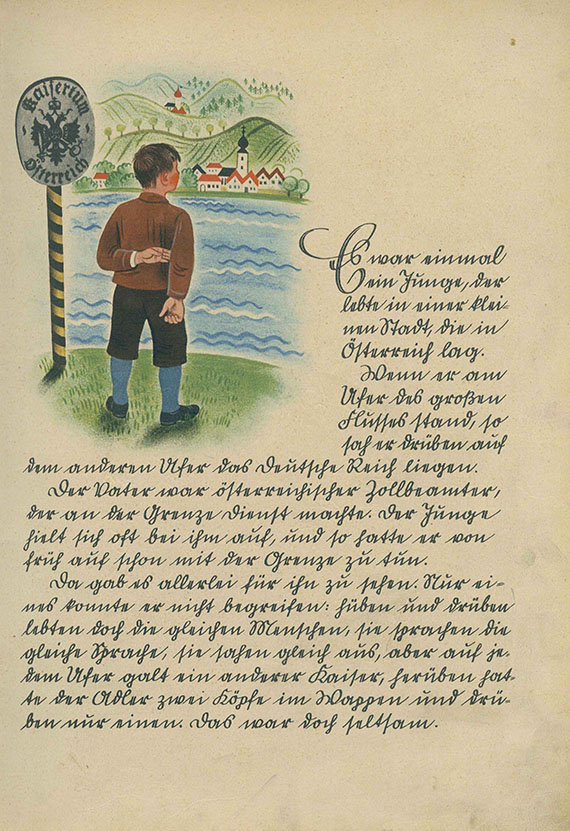 Kaisertum
Österreich
Es war einmal
ein Junge, der
lebte in einer klei-
nen Stadt, die in
Österreich lag.
Wenn er am
Ufer des großen
Flusses stand, so
sah er drüben auf
dem anderen Ufer das Deutsche Reich liegen.
Der Vater war österreichischer Zollbeamter,
der an der Grenze Dienst machte. Der Junge
hielt sich oft bei ihm auf, und so hatte er von
früh auf schon mit der Grenze zu tun.
Da gab es allerlei für ihn zu sehen. Nur ei-
nes konnte er nicht begreifen: hüben und drüben
lebten doch die gleichen Menschen, sie sprachen die
gleiche Sprache, sie sahen gleich aus, aber auf je-
dem Ufer galt ein anderer Kaiser, herüben hat-
te der Adler zwei Köpfe im Wappen und drü-
ben nur einen. Das war doch seltsam.